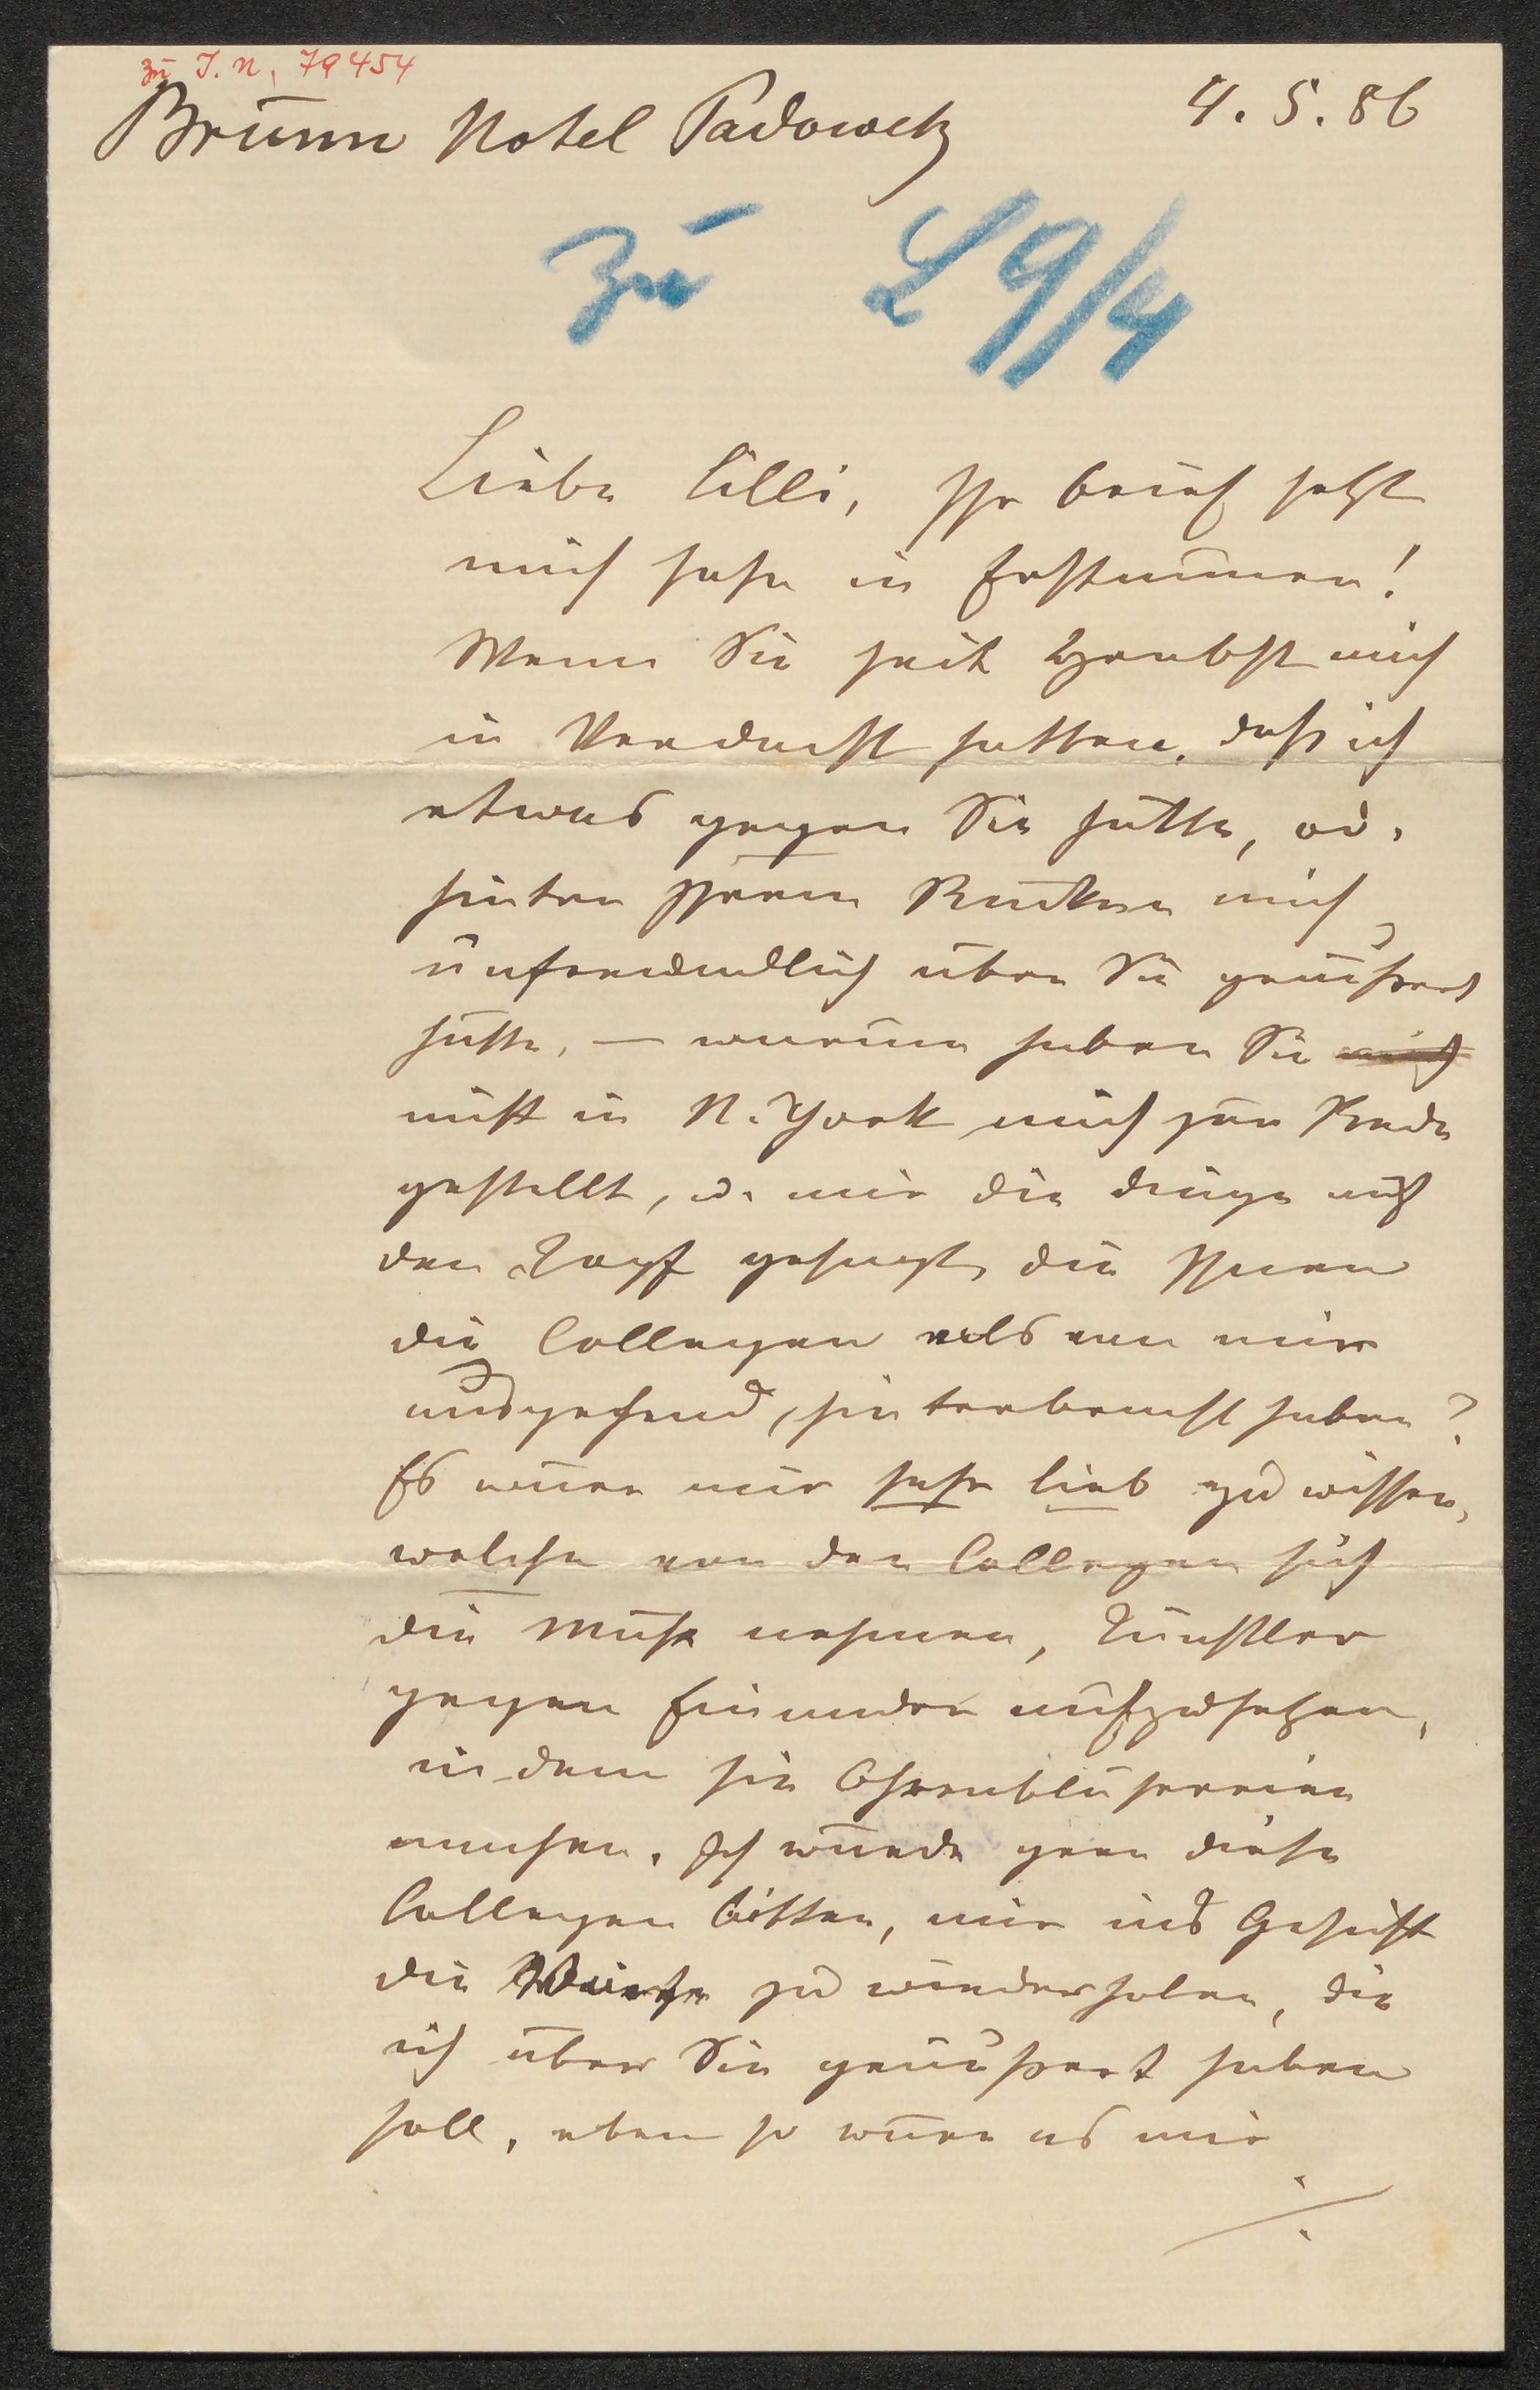 zu I. N. 79454
Brünn Hotel Padowetz 4. 5. 86
zu L 9/4
Liebe Lilli, Ihr Brief setzt
mich sehr in Erstaunen!
Wenn Sie seit Herbst mich
in Verdacht hatten, daß ich
etwas gegen Sie hätte, od.
hinter Ihrem Rücken mich
unfreundlich über Sie geäußert
hätte, — warum haben Sie mich
nicht in N. York mich zur Rede
gestellt, u. mir die Dinge auf
den Kopf gesagt, die Ihnen
die Collegen als von mir
ausgehend, hinterbracht haben?
Es wäre mir sehr lieb zu wissen,
welche von den Collegen sich
die Mühe nehmen, Künstler
gegen Einander aufzuhetzen,
in dem sie Ohrenbläsereien
machen. Ich würde gern diese
Collegen bitten, mir ins Gesicht
die Worte zu wiederholen, die
ich über Sie geäußert haben
soll, eben so wäre es mir
./.